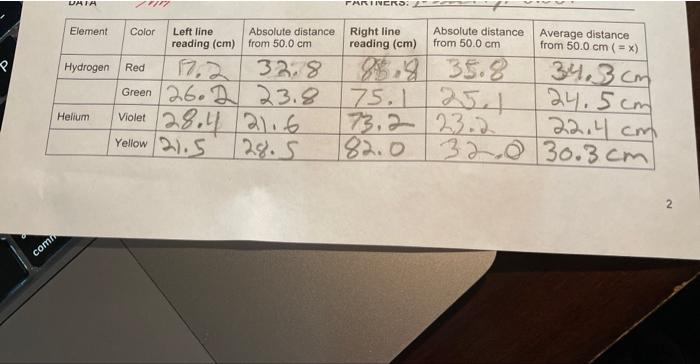 DATA
PARTNERS:
Element Color Left line reading (cm) Absolute distance from 50.0 cm Right line reading (cm) Absolute distance from 50.0 cm Average distance from 50.0 cm ( = x)
Hydrogen Red 17.2 32.8 85.8 35.8 34.3 cm
Green 26.2 23.8 75.1 25.1 24.5 cm
Helium Violet 28.4 21.6 73.2 23.2 22.4 cm
Yellow 21.5 28.5 82.0 32.0 30.3 cm
2